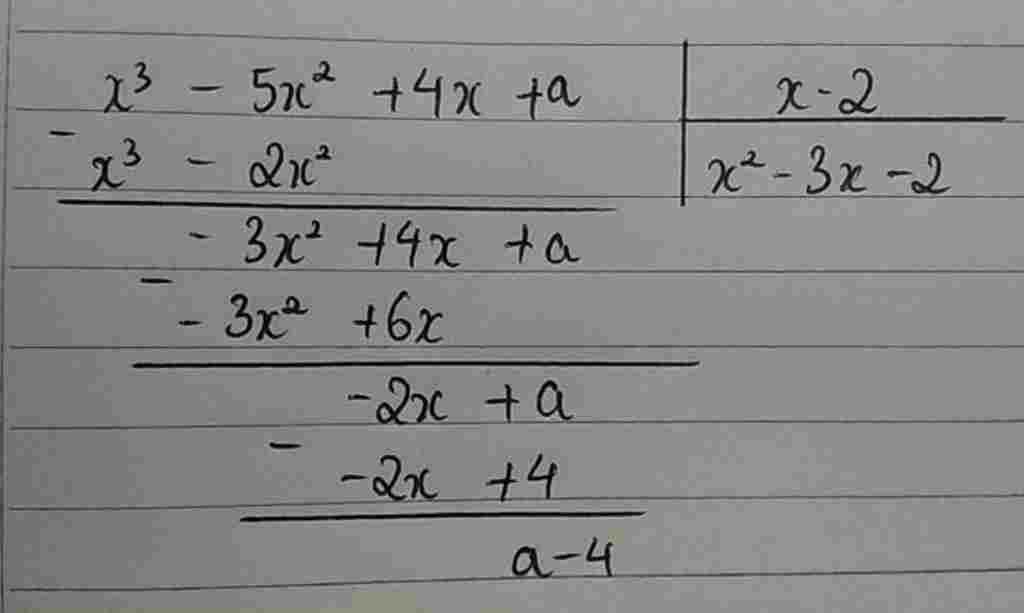 x³ - 5x² + 4x + a | x - 2
- x³ - 2x² | x² - 3x - 2
- 3x² + 4x + a
- - 3x² + 6x
-2x + a
- -2x + 4
a - 4